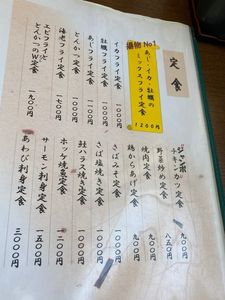 定食
揚物No.1
あじ・イカ・牡蠣の
ミックスフライ定食
1200円
イカフライ定食
牡蠣フライ定食
あじフライ定食
とんかつ定食
海老フライ定食 一七〇〇円
エビフライと
とんかつのW定食 一九〇〇円
ジャンボ
チキンカツ定食 九〇〇円
野菜炒め定食 八五〇円
焼肉定食 九〇〇円
鶏からあげ定食 九〇〇円
さばみそ定食
さば塩焼き定食
鮭ハラス焼き定食
ホッケ焼魚定食
サーモン刺身定食 一五〇〇円
あわび刺身定食 三〇〇〇円